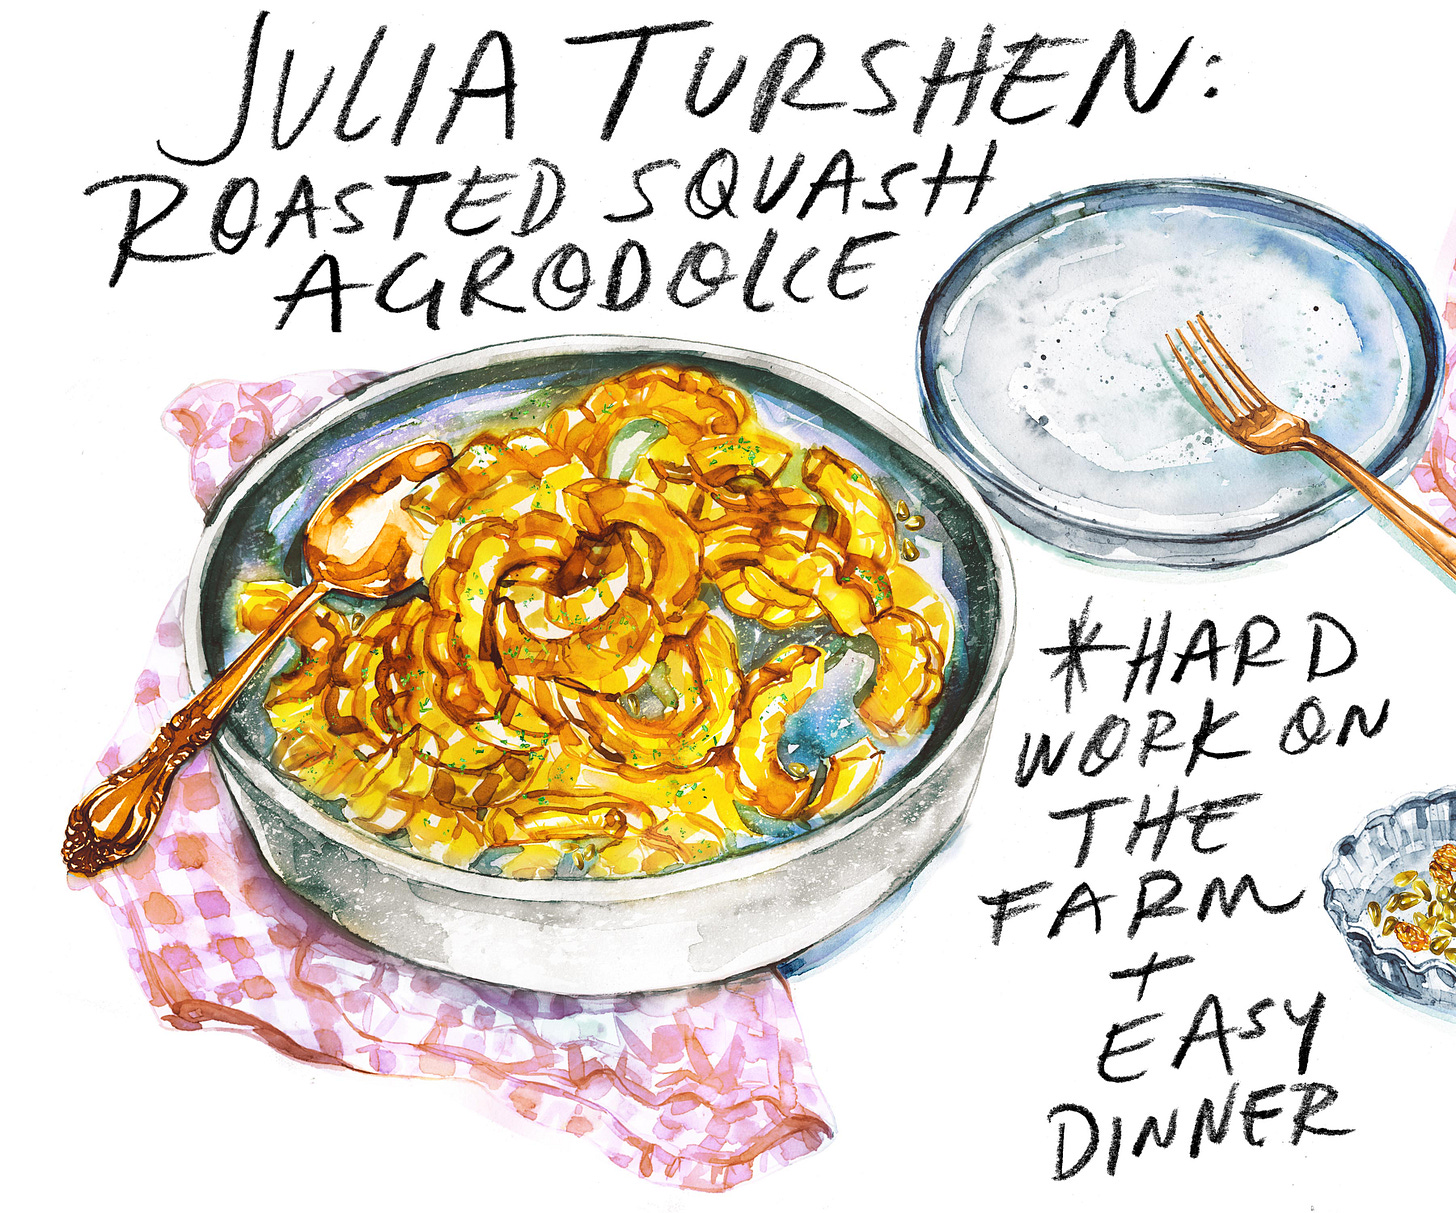 JULIA TURSHEN:
ROASTED SQUASH
AGRODOLCE
*HARD
WORK ON
THE
FARM
+
EASY
DINNER